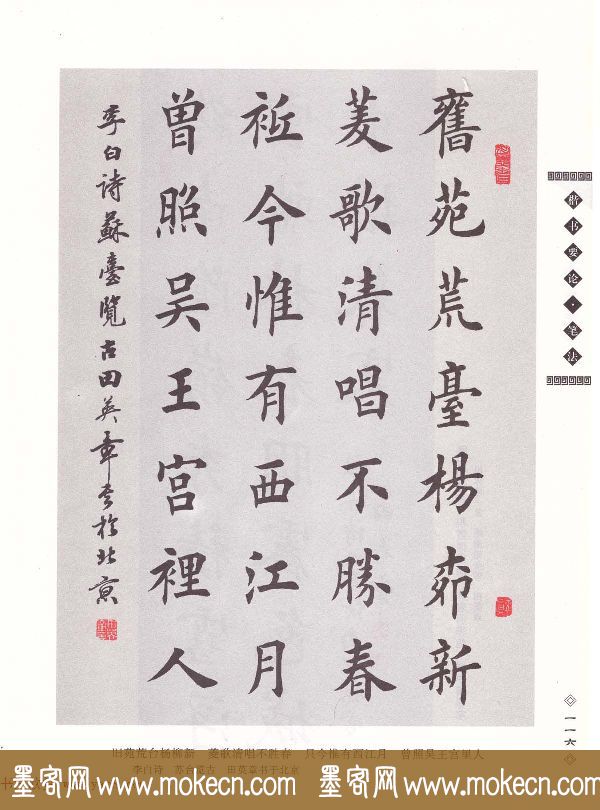 舊苑荒臺楊桺新
菱歌清唱不勝春
祗今惟有西江月
曾照吴王宫裡人
李白詩蘇臺覽古田英章書於北京
楷书要论·笔法
一一六
旧苑荒台杨柳新 菱歌清唱不胜春 只今惟有西江月 曾照吴王宫里人
李白诗 苏台览古 田英章书于北京
墨客网 www.mokecn.com 墨客网 www.mokecn.com